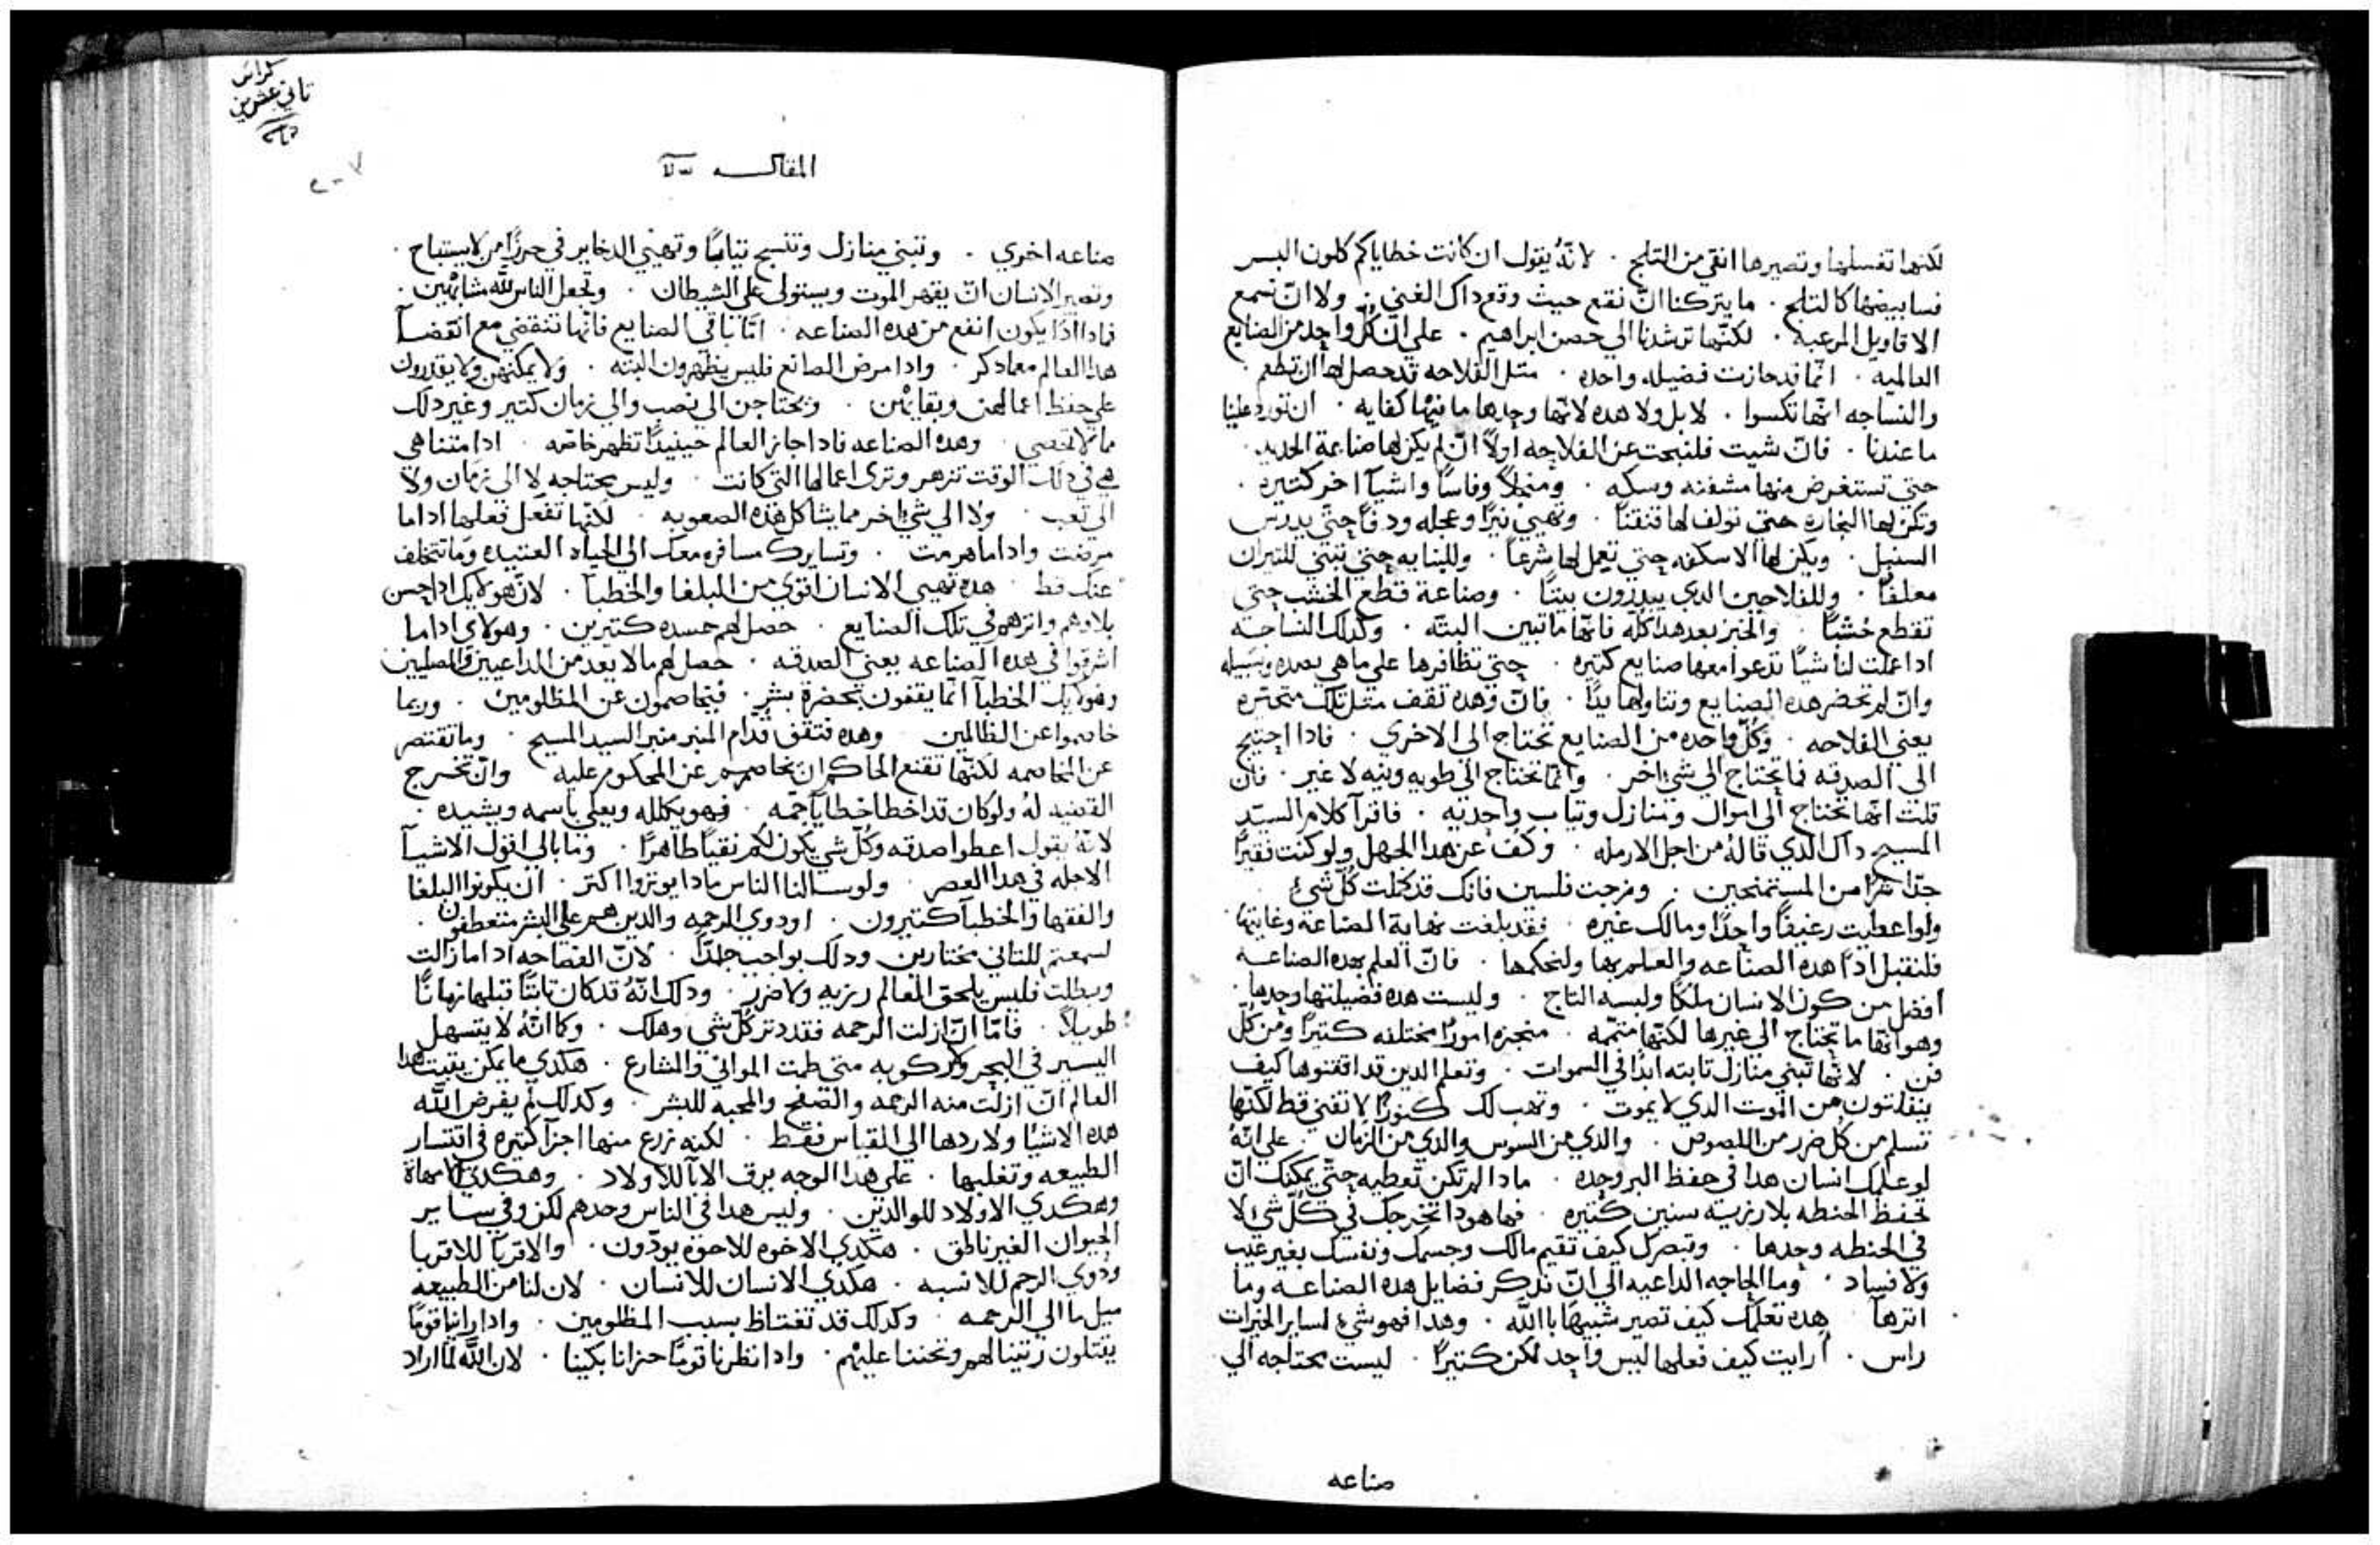 لكنها تغسلها وتصيرها انقي من التلج . لانه يقول ان كانت خطاياكم كلون البسر
فسابيضها كالتلج . ما يتركنا انّ نقع حيث وقع داك الغني . ولا انّ نسمع
الاقاويل المرعبه . لكنّها ترشدنا الي حصن ابراهيم . علي انّ كلّ واحد من الصنايع
العالميه . انّما قد حازت فضيله واحده . متل الفلاحه قد حصل لها ان تطعم .
والنساجه انّها تكسوا . لا بل ولا هده لانّها وحدها ما فيها كفايه . ان تورد علينا
ما عندنا . فانّ شيت فلنبحت عن الفلاحه اولاً انّ لم يكن لها صناعة الحديد .
حتي تستغرض منها مشفنه وسكه . ومنجلاً وفاسًا واشيآ اخر كتيره .
وتكن لها النجاره حتي تولف لها فنقنًا . وتهيي نيرًا وعجله ودفًا حتّي يدرس
السنبل . ويكن لها الاسكفه حتي تعمل لها شرعًا . وللبنايه حتي تبتني للتيران
معلفًا . وللفلاحين الدي يبدرون بيتًا . وصناعة قطع الخشب حتي
تقطع خُشبًا . والخبز بعد هدا كلّه فانّها ما تبين البتّه . وكدلك النساجه
ادا عملت لنا شيًا تدعوا معها صنايع كتيره . حتي تظافرها علي ما هي بصدده وسبيله
وان لم تحضر هده الصنايع وتناولها يدًا . فانّ وهده تقف متل تلك متحيّره
يعني الفلاحه . وكُلّ واحده من الصنايع تحتاج الي الاخري . فادا احتيج
الي الصدقه فما يحتاج الي شي اخر . وانّما تحتاج الي طويه ونيه لا غير . فان
قلت انّها تحتاج الي اموال ومنازل وتياب واحديه . فاقرآ كلام السيّد
المسيح داك الدي قاله من اجل الارمله . وكف عن هدا الجهل ولو كنت فقيرًا
جدّا من المستمنحين . ومزجت فلسين فانك قد كمّلت كُلّ شي
ولو اعطيت رغيفًا واحدًا ومالك غيره . فقد بلغت نهاية الصناعة وغايتها .
فلنقبل ادًا هده الصنّاعه والعلم بها ولنحكمها . فانّ العلم بهده الصناعه
افضل من كون الانسان ملكًا ولبسه التاج . وليست هده فضيلتها وحدها .
وهو انّها ما تحتاج الي غيرها لكنّها متمّمه . منجزه امورًا مختلفه كتيرًا ومن كلّ
فن . لانّها تبني منازل تابته ابدًا في السموات . وتعلم الدين قد اقتنوها كيف
ينفلتون من الموت الدي لا يموت . وتهب لك كنوزًا لا تفني قط لكنّها
تسلم من كل ضرر من اللصوص . والدي من السوس والدي من الزمان . علي انّه
لو علّمك انسان هدا في حفظ البر وحده . مادا لم تكن تعطيه حتّي يمكنك انّ
تحفظ الحنطه بلا رزيّه سنين كتيره . فها هودا تخرجك في كُلّ شي لا
في الحنطه وحدها . وتبصرك كيف تقيم مالك وجسمك ونفسك بغير عيب
ولا فساد . وما الحاجه الداعيه الي انّ ندكر فضايل هده الصناعه وما
اترهآ هده تعلّمك كيف تصير شبيهًا باالله . وهدا فهو شي لساير الخيرات
راس . ارايت كيف فعلها ليس واحد لكن كتيرًا . ليست محتاجه الي
صناعه
كراس
تاني عشرين
المقاله
صناعه اخري . وتبني منازل وتنسج تيابًا وتهيّي الدخاير في حرزًا من لا يستباح .
وتصير الانسان انّ يقهر الموت ويستولي علي الشيطان . وتجعل الناس لله مشابهين .
فمادا ادًا يكون انفع من هده الصناعه . امّا باقي الصنايع فانّها تنقضي مع انقضآ
هدا العالم معادكر . وادا مرض الصانع فليس يظهرون البته . ولا يمكنهن ولا يقدرون
علي حفظ اعمالهن وبقايهن . ويحتاجن الي نصب والي زمان كتير وغير دلك
ما لا تحصي . وهده الصناعه فادا جاز العالم حينيدًا تظهر خاصّه . ادا متنا هي
هي في دلك الوقت تزهر وتري اعمالها التي كانت . وليس محتاجه لا الي زمان ولا
الي تعب . ولا الي شي اخر مما يشاكل هده الصعوبه . لكنّها تفعل فعلها ادا ما
مرضت وادا ما هرمت . وتسايرك مسافره معك الي الحياه العتيده وما تتخلف
عنك قط . هده تهيي الانسان اقوي من البلغا والخطبآ . لانّ هولايك ادا حسن
بلاوهم واترهم في تلك الصنايع . حصل لهم حسده كتيرين . وهولاي ادا ما
اشرقوا في هده الصناعه يعني الصدقه . حصل لهم ما لا يعد من الداعيين والمصليين
وهولايك الخطبآ انّما يقفون بحضرة بشر . فيخاصمون عن المظلومين . وربما
خاصموا عن الظالمين وهده فتقف قدّام المنبر منبر السيد المسيح . وما تقتصر
عن المخاصمه لكنّها تقنع الحاكم ان يخاصم عن المحكوم عليه وانّ تخرج
القضيه لهُ ولو كان قد اخطا خطايآ جمّه . فهو يكلله ويعلي باسمه ويشيده .
لانّهُ يقول اعطوا صدقه وكُلّ شي يكون لكم نقيًا طاهرًا . وما بالي اقول الاشيآ
الاجله في هدا العصر . ولو سالنا الناس مادا يوتروا اكتر . ان يكونوا البلغا
والفقها والخطبآ كتيرون . او دوي الرحمه والدين هم علي البشر متعطفون .
لسمعتم للتاني مختارين ودلك بواجب جدًّا . لانّ الفصاحه ادا ما زالت
وبطلت فليس يلحق العالم رزيه ولا ضرر . ودلك انّهُ قد كان تابتًا قبلها زمانًا
طويلاً . فامّا انّ ازلت الرحمه فقد دتر كلّ شي وهلك . وكما انّهُ لا يتسهل
اليسير في البحر وركوبه متي طمت المواني والمشارع . هكدي ما يمكن يتبت هدا
العالم انّ ازلت منه الرحمه والصفح والمحبه للبشر . وكدلك لم يفرض الله
هده الاشيآ ولا ردها الي القياس فقط . لكنه زرع منها اجزآ كتيره في اقتسار
الطبيعه وتغلبها . علي هدا الوجه يرق الابآ للاولاد . وهكدي الامهاة
وهكدي الاولاد للوالدين . وليس هدا في الناس وحدهم لكن وفي ساير
الحيوان الغير ناطق . هكدي الاخوه للاخوه يودّون . والاقربآ للاقربا
ودوي الرحم للانسبه . هكدي الانسان للانسان . لان لنا من الطبيعه
ميل ما الي الرحمه . وكدلك قد نغتاظ بسبب المظلومين . وادا راينا قومًا
يقتلون رتينا لهم وتحننا عليهم . وادا نظرنا قومًا حزانا بكينا . لان الله لما اراد